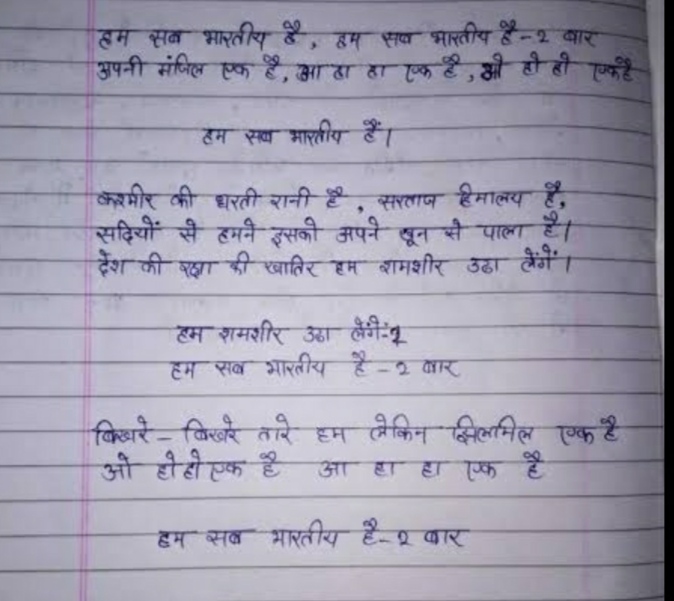 हम सब भारतीय है, हम सब भारतीय है-२ बार
अपनी मंजिल एक है, आ हा हा एक है, ओ हो हो एक है
हम सब भारतीय हैं।
कश्मीर की धरती रानी है, सरताज हिमालय है,
सदियों से हमने इसको अपने खून से पाला है।
देश की रक्षा की खातिर हम शमशीर उठा लेंगें।
हम शमशीर उठा लेंगें-२
हम सब भारतीय है - २ बार
बिखरे - बिखरे तारे हम लेकिन झिलमिल एक है
ओ हो हो एक है आ हा हा एक है
हम सब भारतीय है-२ बार